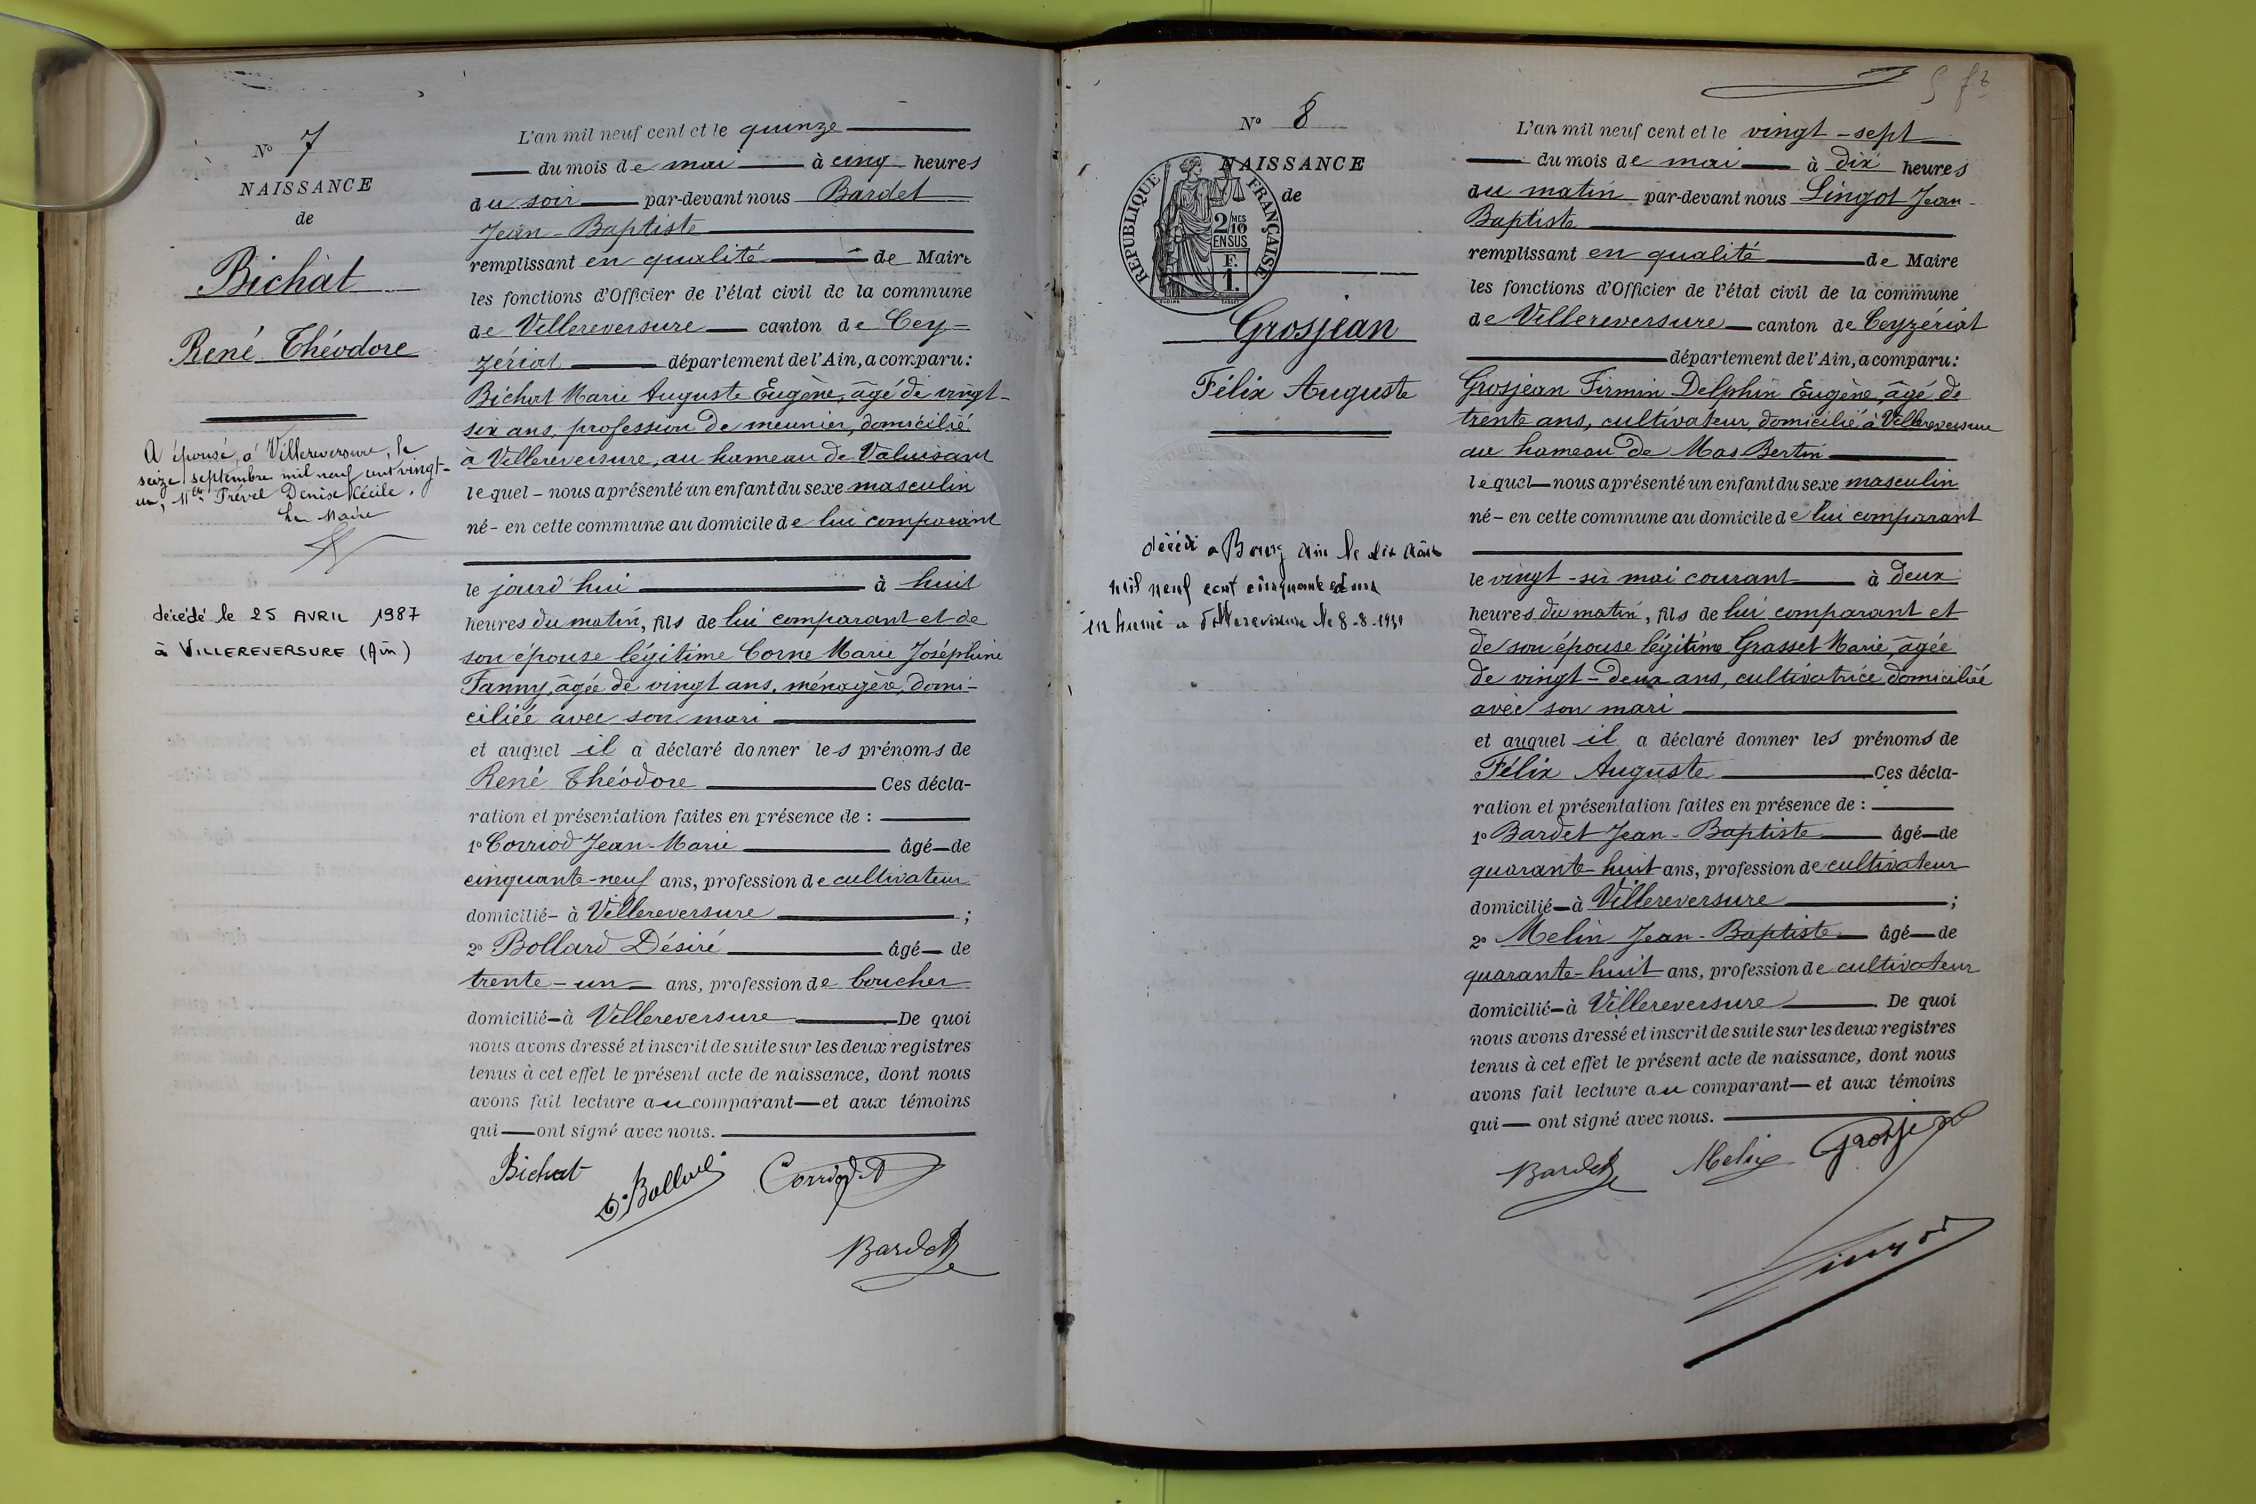 N° 7
NAISSANCE
de
Bichat
René Théodore
A épousé, à Villereversure, le
seize septembre mil neuf cent vingt-
un, Mlle Frével Denise Cécile.
Le Maire
décédé le 25 AVRIL 1987
à VILLEREVERSURE (Ain)
L'an mil neuf cent et le quinze
du mois de mai à cinq heures
du soir par-devant nous Bardet
Jean-Baptiste
remplissant en qualité de Maire
les fonctions d'Officier de l'état civil de la commune
de Villereversure canton de Cey=
zériat département de l'Ain, a comparu:
Bichat Marie Auguste Eugène, âgé de vingt-
six ans, profession de meunier, domicilié
à Villereversure, au hameau de Valuisant
lequel - nous a présenté un enfant du sexe masculin
né - en cette commune au domicile de lui comparant
le jourd'hui à huit
heures du matin, fils de lui comparant et de
son épouse légitime Corne Marie Joséphine
Fanny, âgée de vingt ans, ménagère, domi-
ciliée avec son mari
et auquel il a déclaré donner les prénoms de
René Théodore Ces décla-
ration et présentation faites en présence de :
1° Corriod Jean-Marie âgé de
cinquante-neuf ans, profession de cultivateur
domicilié - à Villereversure ;
2° Bollard Désiré âgé de
trente-un ans, profession de boucher
domicilié - à Villereversure De quoi
nous avons dressé et inscrit de suite sur les deux registres
tenus à cet effet le présent acte de naissance, dont nous
avons fait lecture au comparant et aux témoins
qui ont signé avec nous.
Bichat D. Bollard Corriod
Bardet
N° 8
NAISSANCE
de
RÉPUBLIQUE FRANÇAISE
2/10 MES
EN SUS
F.
1.
Grosjean
Félix Auguste
décédé a Bourg Ain le six Août
mil neuf cent cinquante et un
inhumé a Villereversure le 8-8-1951
L'an mil neuf cent et le vingt-sept
du mois de mai à dix heures
du matin par-devant nous Lingot Jean-
Baptiste
remplissant en qualité de Maire
les fonctions d'Officier de l'état civil de la commune
de Villereversure canton de Ceyzériat
département de l'Ain, a comparu:
Grosjean Firmin Delphin Eugène, âgé de
trente ans, cultivateur, domicilié à Villereversure
au hameau de Mas Bertin
lequel nous a présenté un enfant du sexe masculin
né - en cette commune au domicile de lui comparant
le vingt-six mai courant à deux
heures du matin, fils de lui comparant et
de son épouse légitime Grasset Marie, âgée
de vingt-deux ans, cultivatrice domiciliée
avec son mari
et auquel il a déclaré donner les prénoms de
Félix Auguste Ces décla-
ration et présentation faites en présence de :
1° Bardet Jean-Baptiste âgé de
quarante-huit ans, profession de cultivateur
domicilié à Villereversure ;
2° Melin Jean-Baptiste âgé de
quarante-huit ans, profession de cultivateur
domicilié à Villereversure . De quoi
nous avons dressé et inscrit de suite sur les deux registres
tenus à cet effet le présent acte de naissance, dont nous
avons fait lecture au comparant et aux témoins
qui ont signé avec nous.
Bardet Melin Grosjean
Lingot